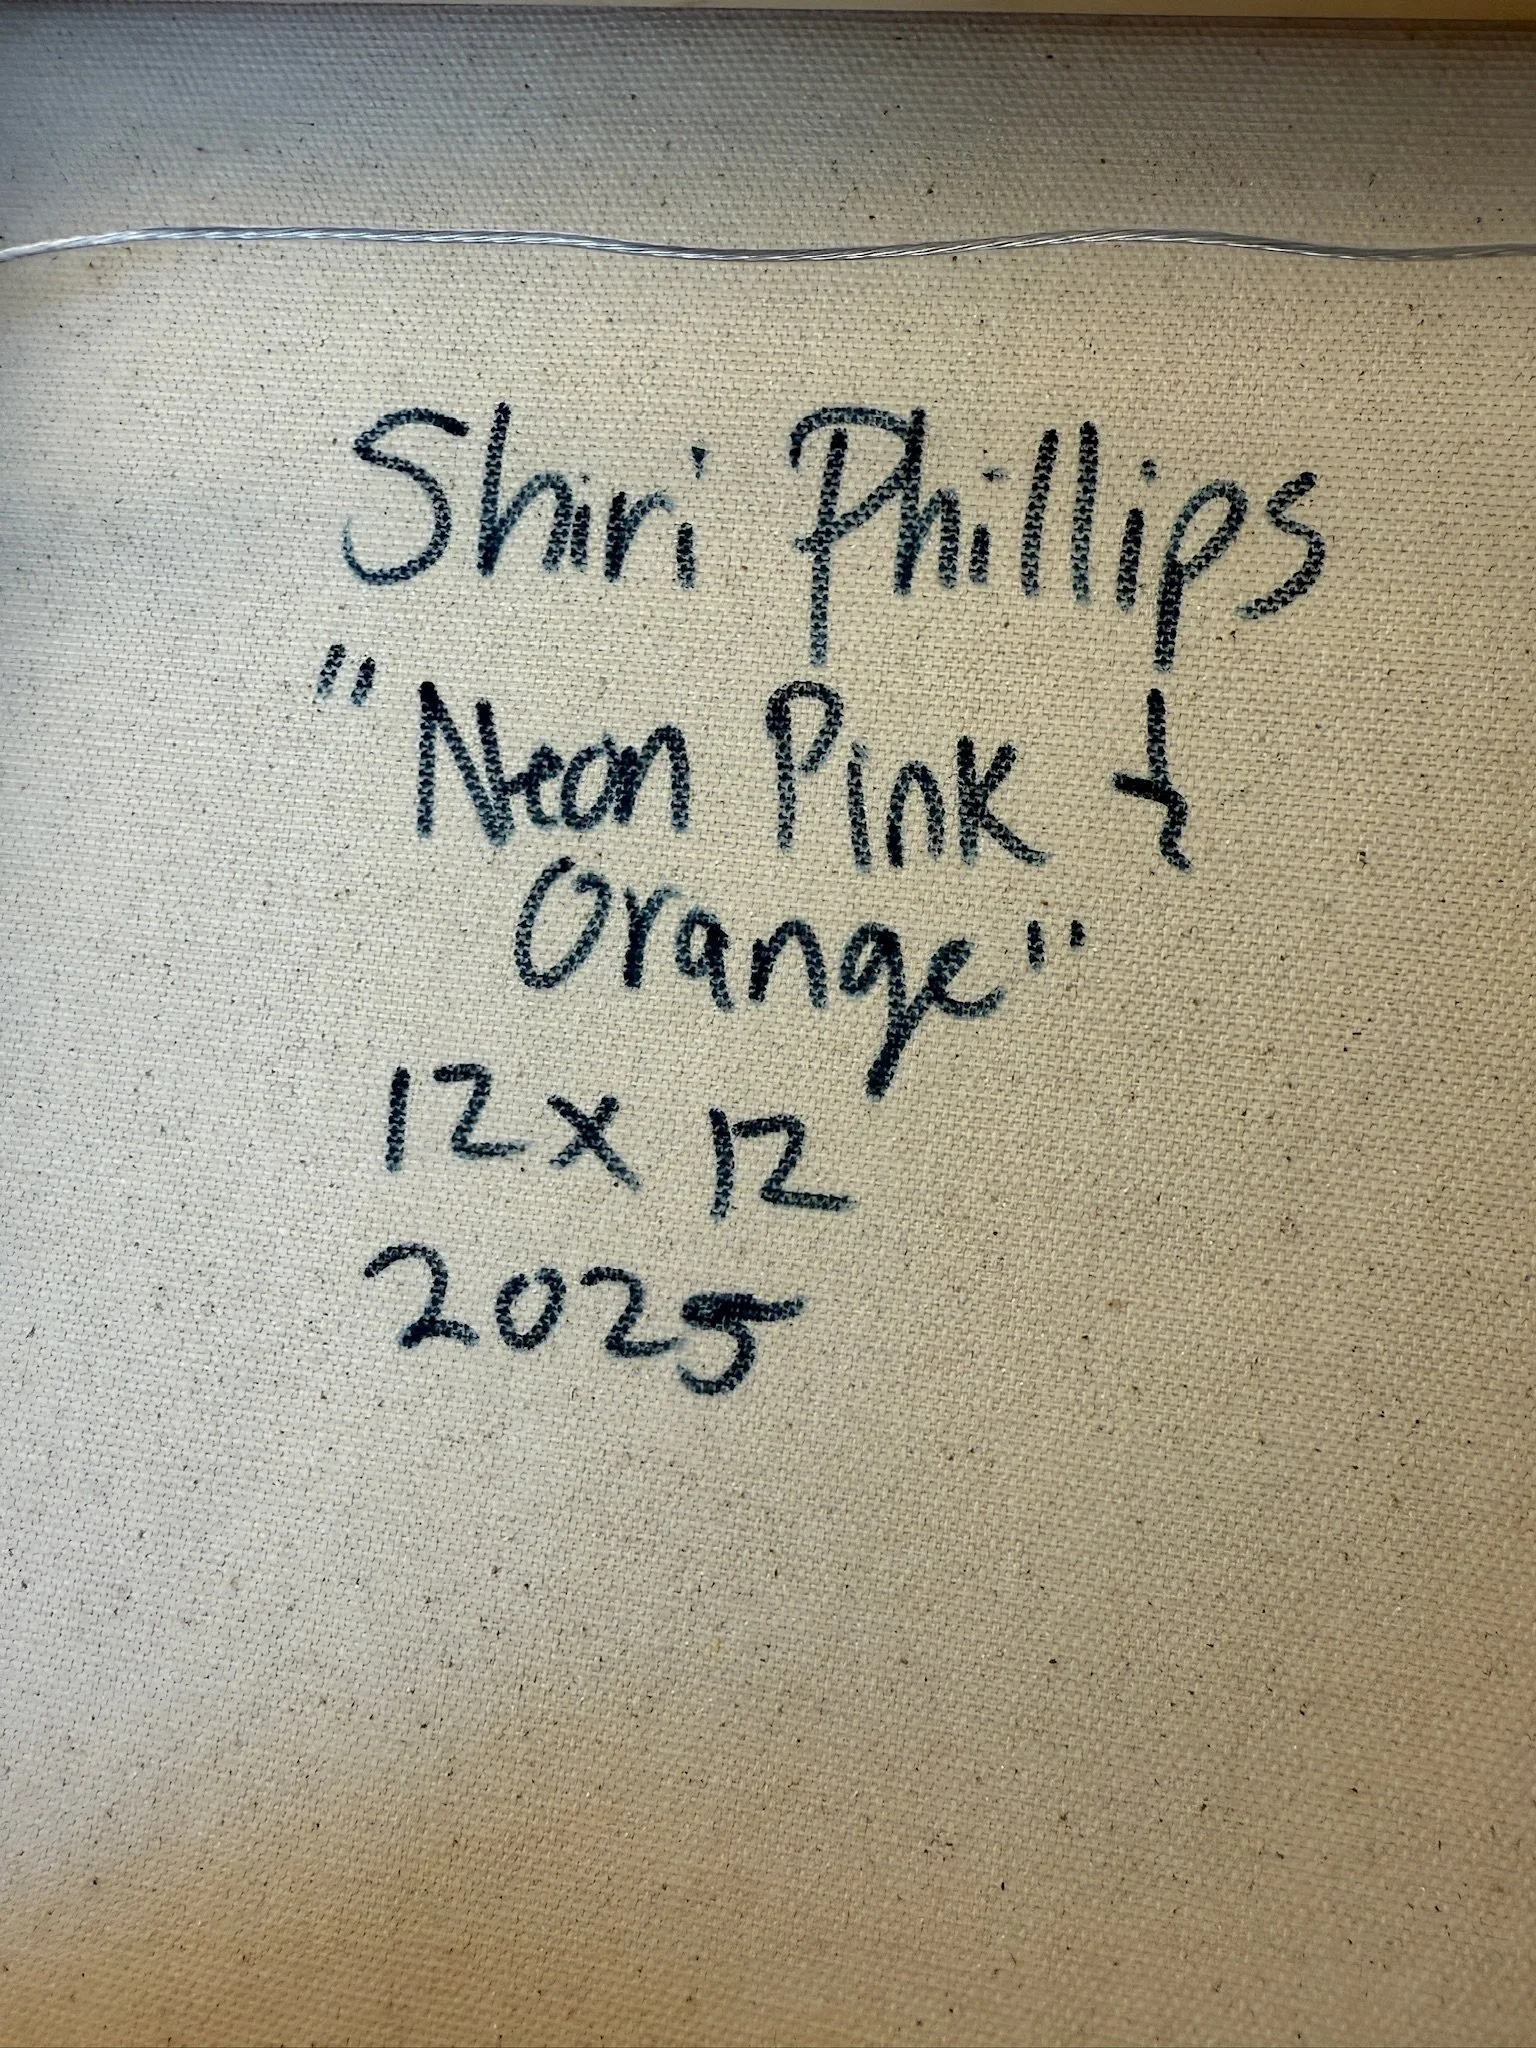 Shiri Phillips
"Neon Pink &
Orange"
12 x 12
2025